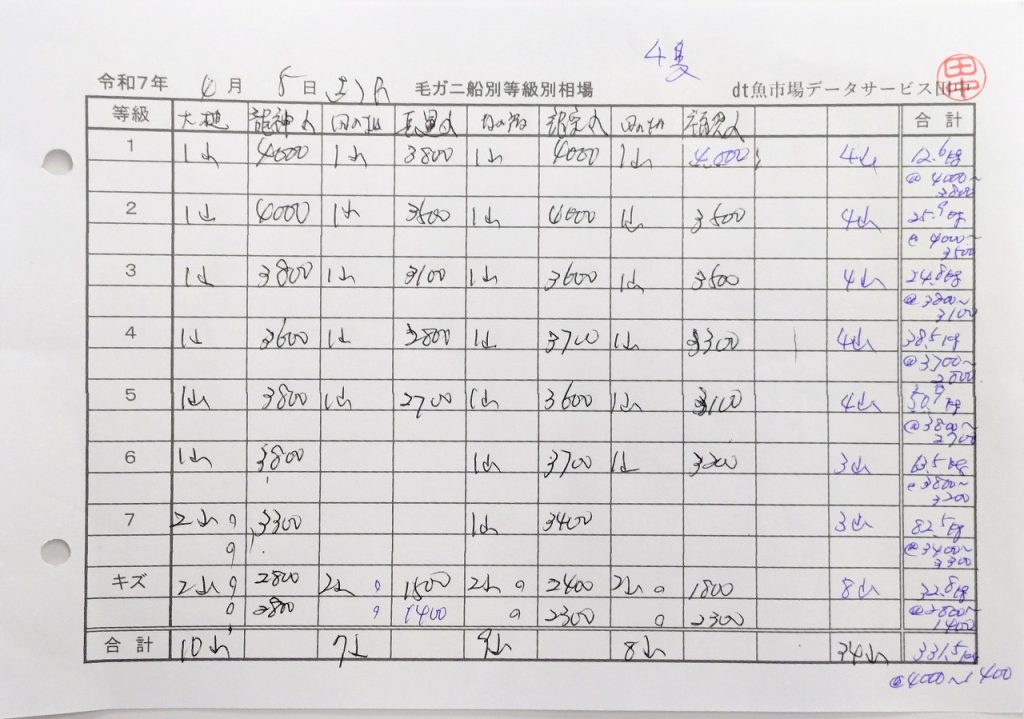 4隻
令和7年 4月 5日(土) 毛ガニ船別等級別相場 dt魚市場データサービス田中
等級 大樹 龍神丸 合計
1 1山 4000 1山 3800 1山 4000 1山 4,000 4山 12.6kg
@4000~3800
2 1山 4000 1山 3500 1山 4000 1山 3500 4山 25.9kg
@4000~3500
3 1山 3800 1山 3100 1山 3600 1山 3500 4山 24.8kg
@3800~3100
4 1山 3600 1山 2800 1山 3700 1山 3300 4山 38.5kg
@3700~2800
5 1山 3800 1山 2700 1山 3600 1山 3100 4山 50.9kg
@3800~2700
6 1山 3800 1山 3700 1山 3200 3山 63.5kg
@3800~3200
7 2山 3300 1山 3400 3山 82.5kg
@3400~3300
キズ 2山 2800 2山 1500 2山 2400 2山 1800 8山 32.8kg
2800 1400 2300 2300 @2800~1400
合計 10山 7山 9山 8山 34山 331.5kg
@4000~1400